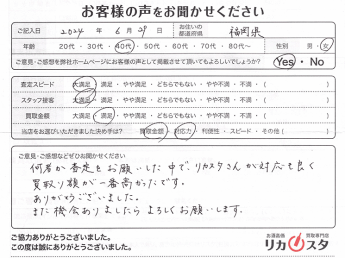 お客様の声をお聞かせください
ご記入日 2024 年 6 月 29 日 お住いの都道府県 福岡県
年齢 20代・30代・40代・50代・60代・70代・80代~ 性別 男・女
ご意見・ご感想を弊社ホームページにお客様の声として掲載させて頂いてもよろしいでしょうか? Yes・No
査定スピード 大満足・満足・やや満足・どちらでもない・やや不満・不満・( )
スタッフ接客 大満足・満足・やや満足・どちらでもない・やや不満・不満・( )
買取金額 大満足・満足・やや満足・どちらでもない・やや不満・不満・( )
当店をお選びいただきました決め手は? 買取金額・対応力・利便性・スピード・その他( )
ご意見・ご感想などぜひお聞かせください
何者か査定をお願いした中で、リカスタさんが対応も良く
買取り額が一番高かったです。
ありがとうございました。
また機会ありましたらよろしくお願いします。
ご協力ありがとうございました。
この度は誠にありがとうございました。
お酒高価買取専門店
リカスタ